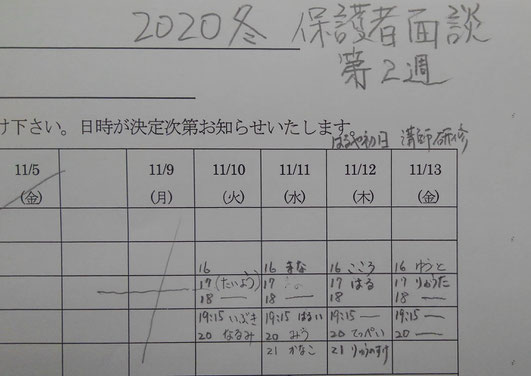 2020冬 保護者面談
第2週
け下さい。日時が決定次第お知らせいたします
初日 講師研修
11/5 11/9 11/10 11/11 11/12 11/13
(金) (月) (火) (水) (木) (金)
16 16 まな 16 こころ 16 ゆうと
17 (たいよう) 17 17 はる 17 りゅうた
18 — 18 — 18 18 —
19:15 いぶき 19:15 はるい 19:15 — 19:15 —
20 なるみ 20 みう 20 てっぺい 20 —
21 かなこ 21 りゅうのすけ